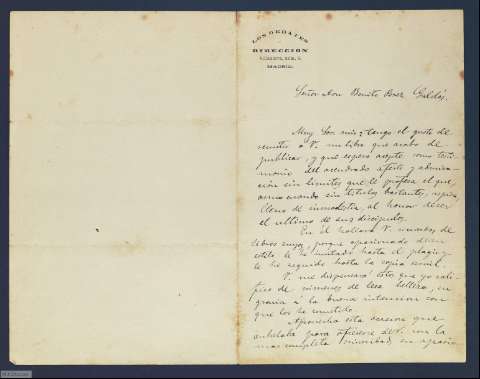 LOS DEBATES
DIRECCIÓN
MADRID
Señor Don Benito Perez Galdós.
Muy Sor mio: tengo el gusto de
remitir á V. un libro que acabo de
publicar, y que espero acepte como testi-
monio del acendrado afecto y admira-
ción sin límites que le profesa el que,
aun cuando sin títulos bastantes, aspira,
lleno de inmodestia, al honor de ser
el último de sus discípulos.
En él hallará V. nombres de
libros suyos, porque apasionado de su
estilo le he imitado hasta el plagio y
le he seguido hasta la copia servil.
V. me dispensará estos que yo cali-
fico de crímenes de lesa belleza, en
gracia á la buena intencion con
que los he cometido.
Aprovecho esta ocasion que
anhelaba para ofrecerme de V. con la
mas completa sinceridad, su apasio-